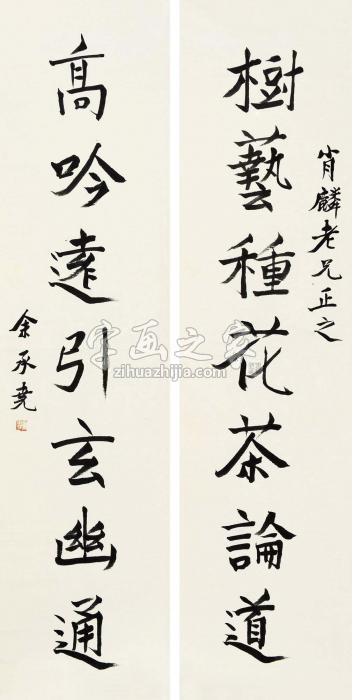 肖麟老兄正之
樹藝種花茶論道
髙吟遠引玄幽通
余承堯
字画之家
zihuazhijia.com